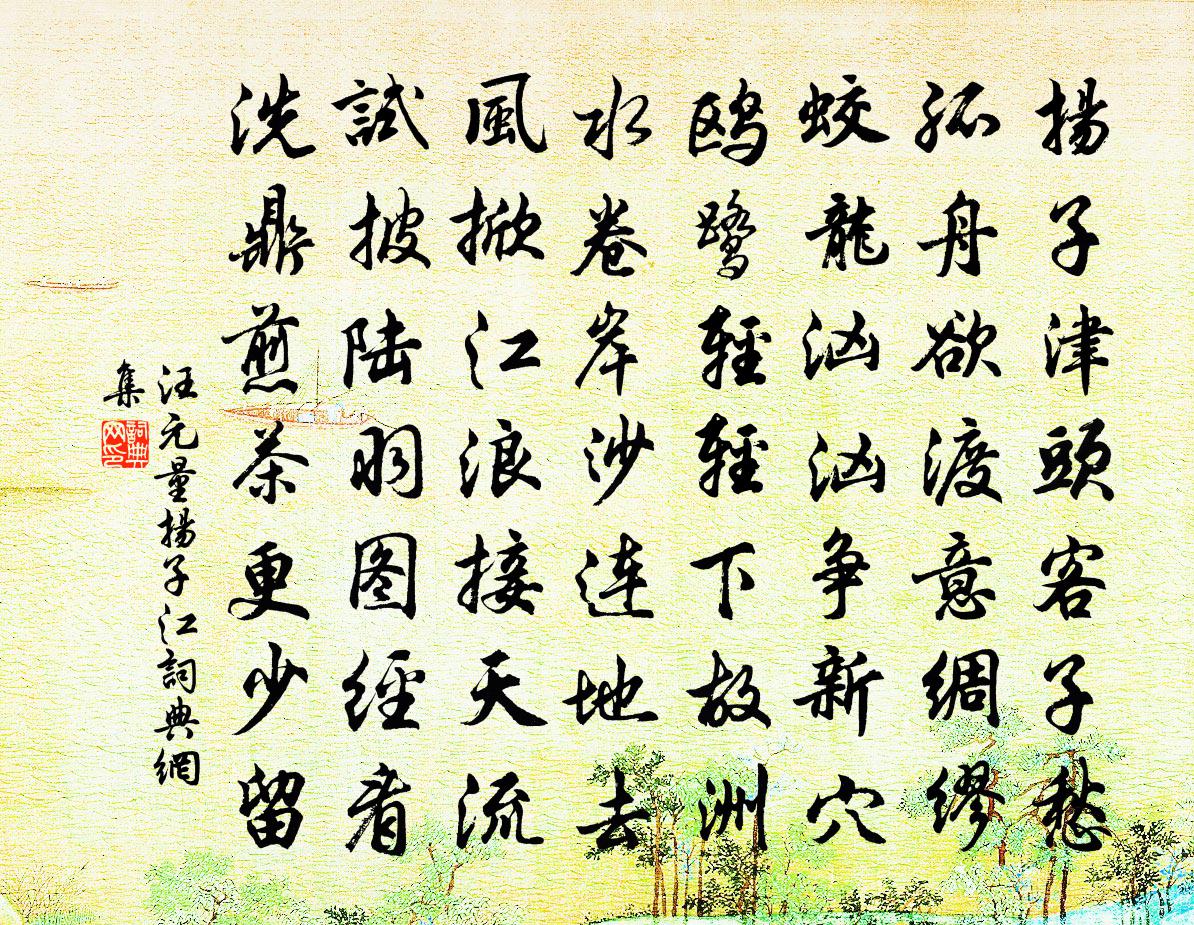 揚子津頭客子愁
孤舟欲渡意綢繆
蛟龍汹汹争新穴
鸥鹭輕輕下故洲
水卷岸沙連地去
風掀江浪接天流
試披陆羽图經看
洗鼎煎茶更少留
汪元量揚子江詞典網
集
詞典
网印